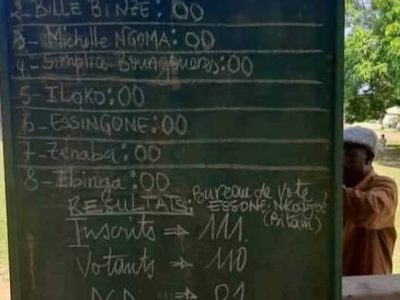 2- BILLE BINZE: 00
3- Michelle NGOMA: 00
4- Simplice Boungoueres: 00
5- ILOKO: 00
6- ESSINGONE: 00
7- Zenaba: 00
8- Ibinga: 00
RESULTATS: Bureau de Vote
ESSONE, Nkolajoe
(Bitam)
Inscrits ⇒ 111.
Votants ⇒ 110
01